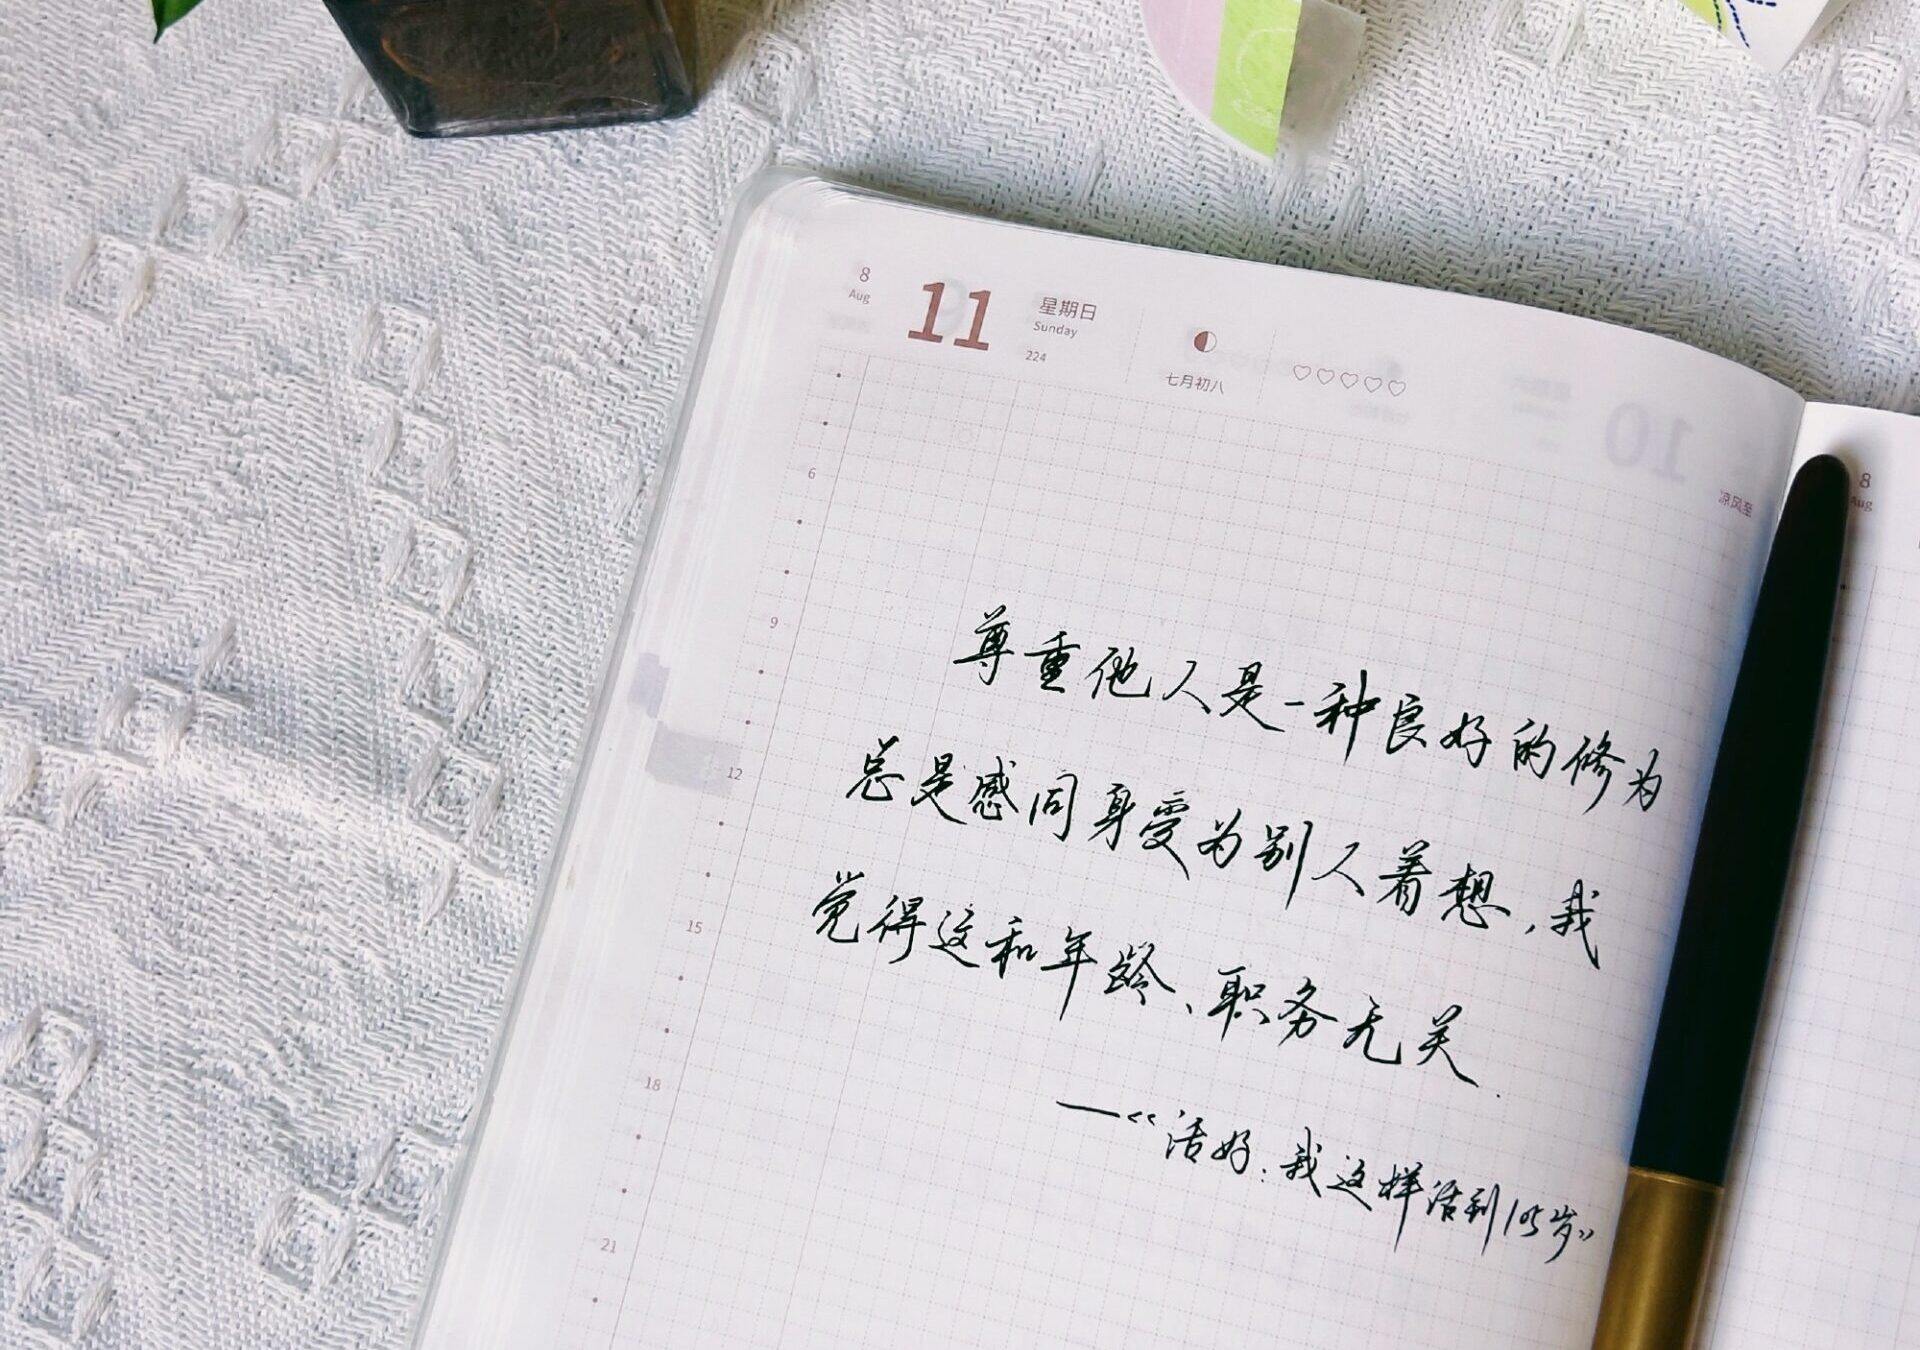 8
Aug
11
星期日
Sunday
224
七月初八
10
凉风至
8
Aug
6
9
12
15
18
21
尊重他人是一种良好的修为
总是感同身受为别人着想，我
觉得这和年龄、职务无关.
—《活好：我这样活到105岁》